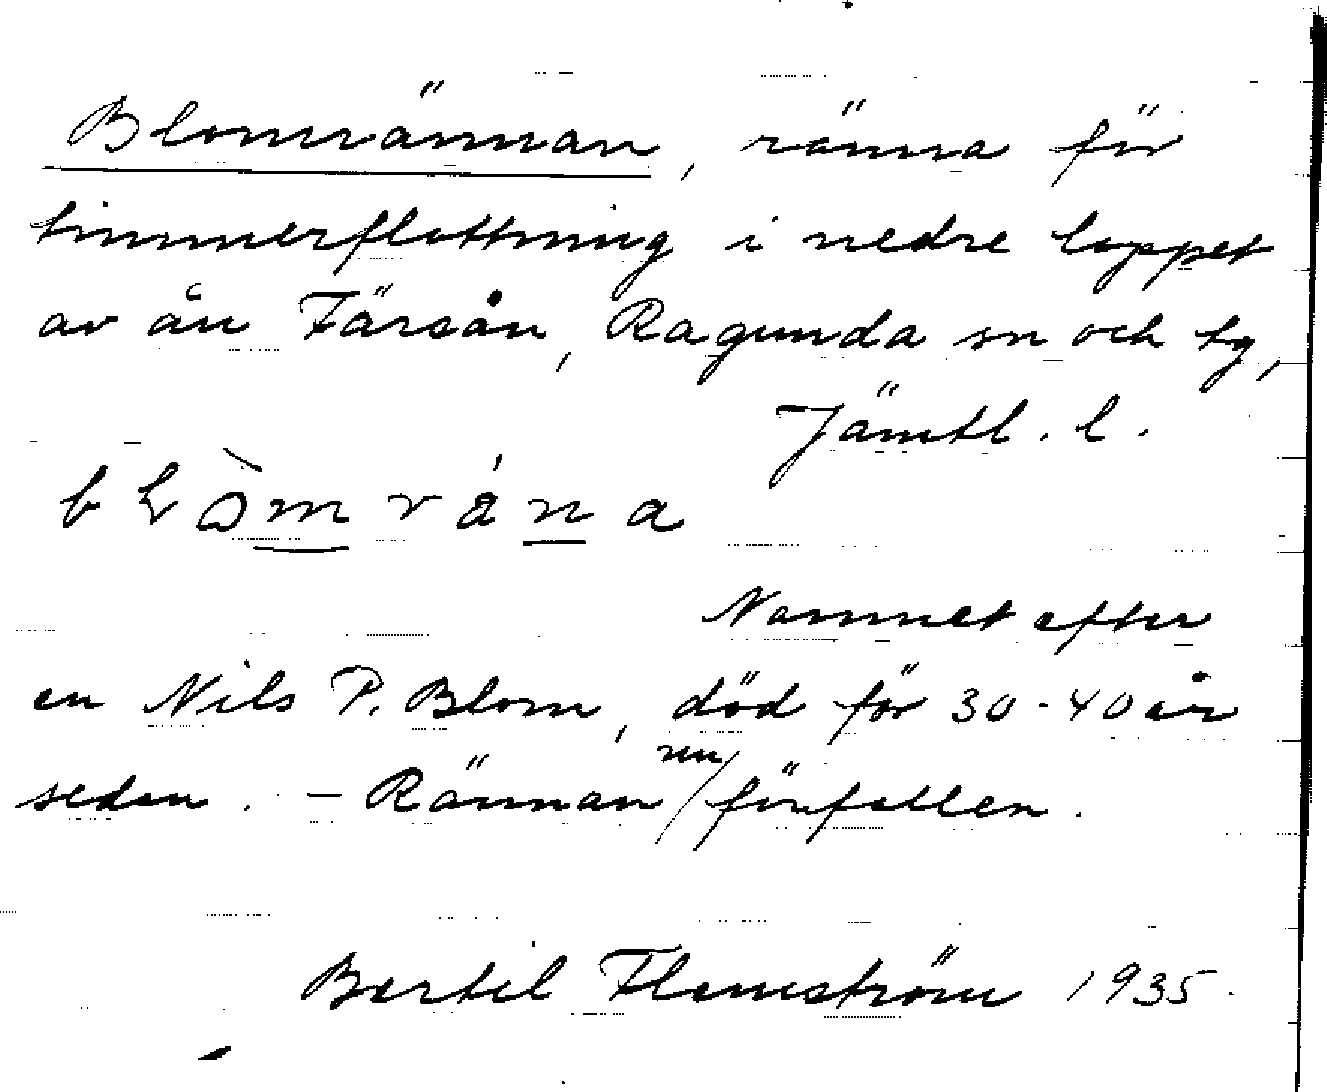 Blomrännan, ränna för
timmerflottning i nedre loppet
av ån Färsån, Ragunda sn och tg,
Jämtl. l.
Namnet efter
en Nils P. Blom, död för 30-40 år
seden. - Rännan nu förfallen.
Bertil Flemström 1935.